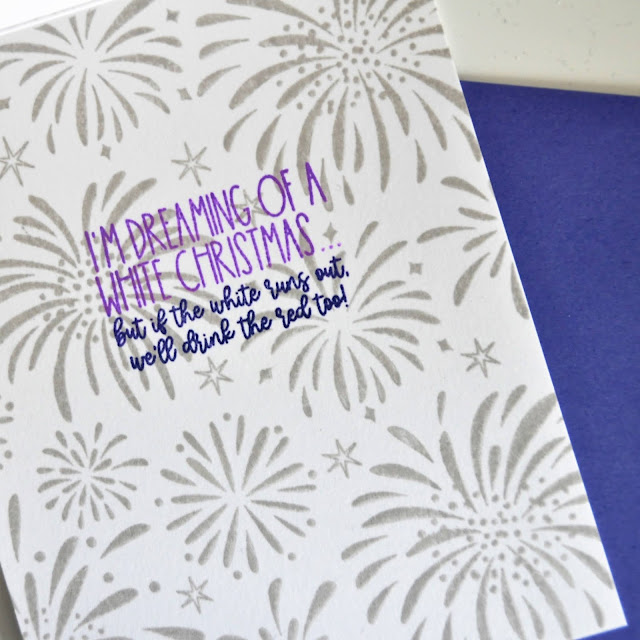 I'M DREAMING OF A
WHITE CHRISTMAS...
but if the white runs out,
we'll drink the red too!